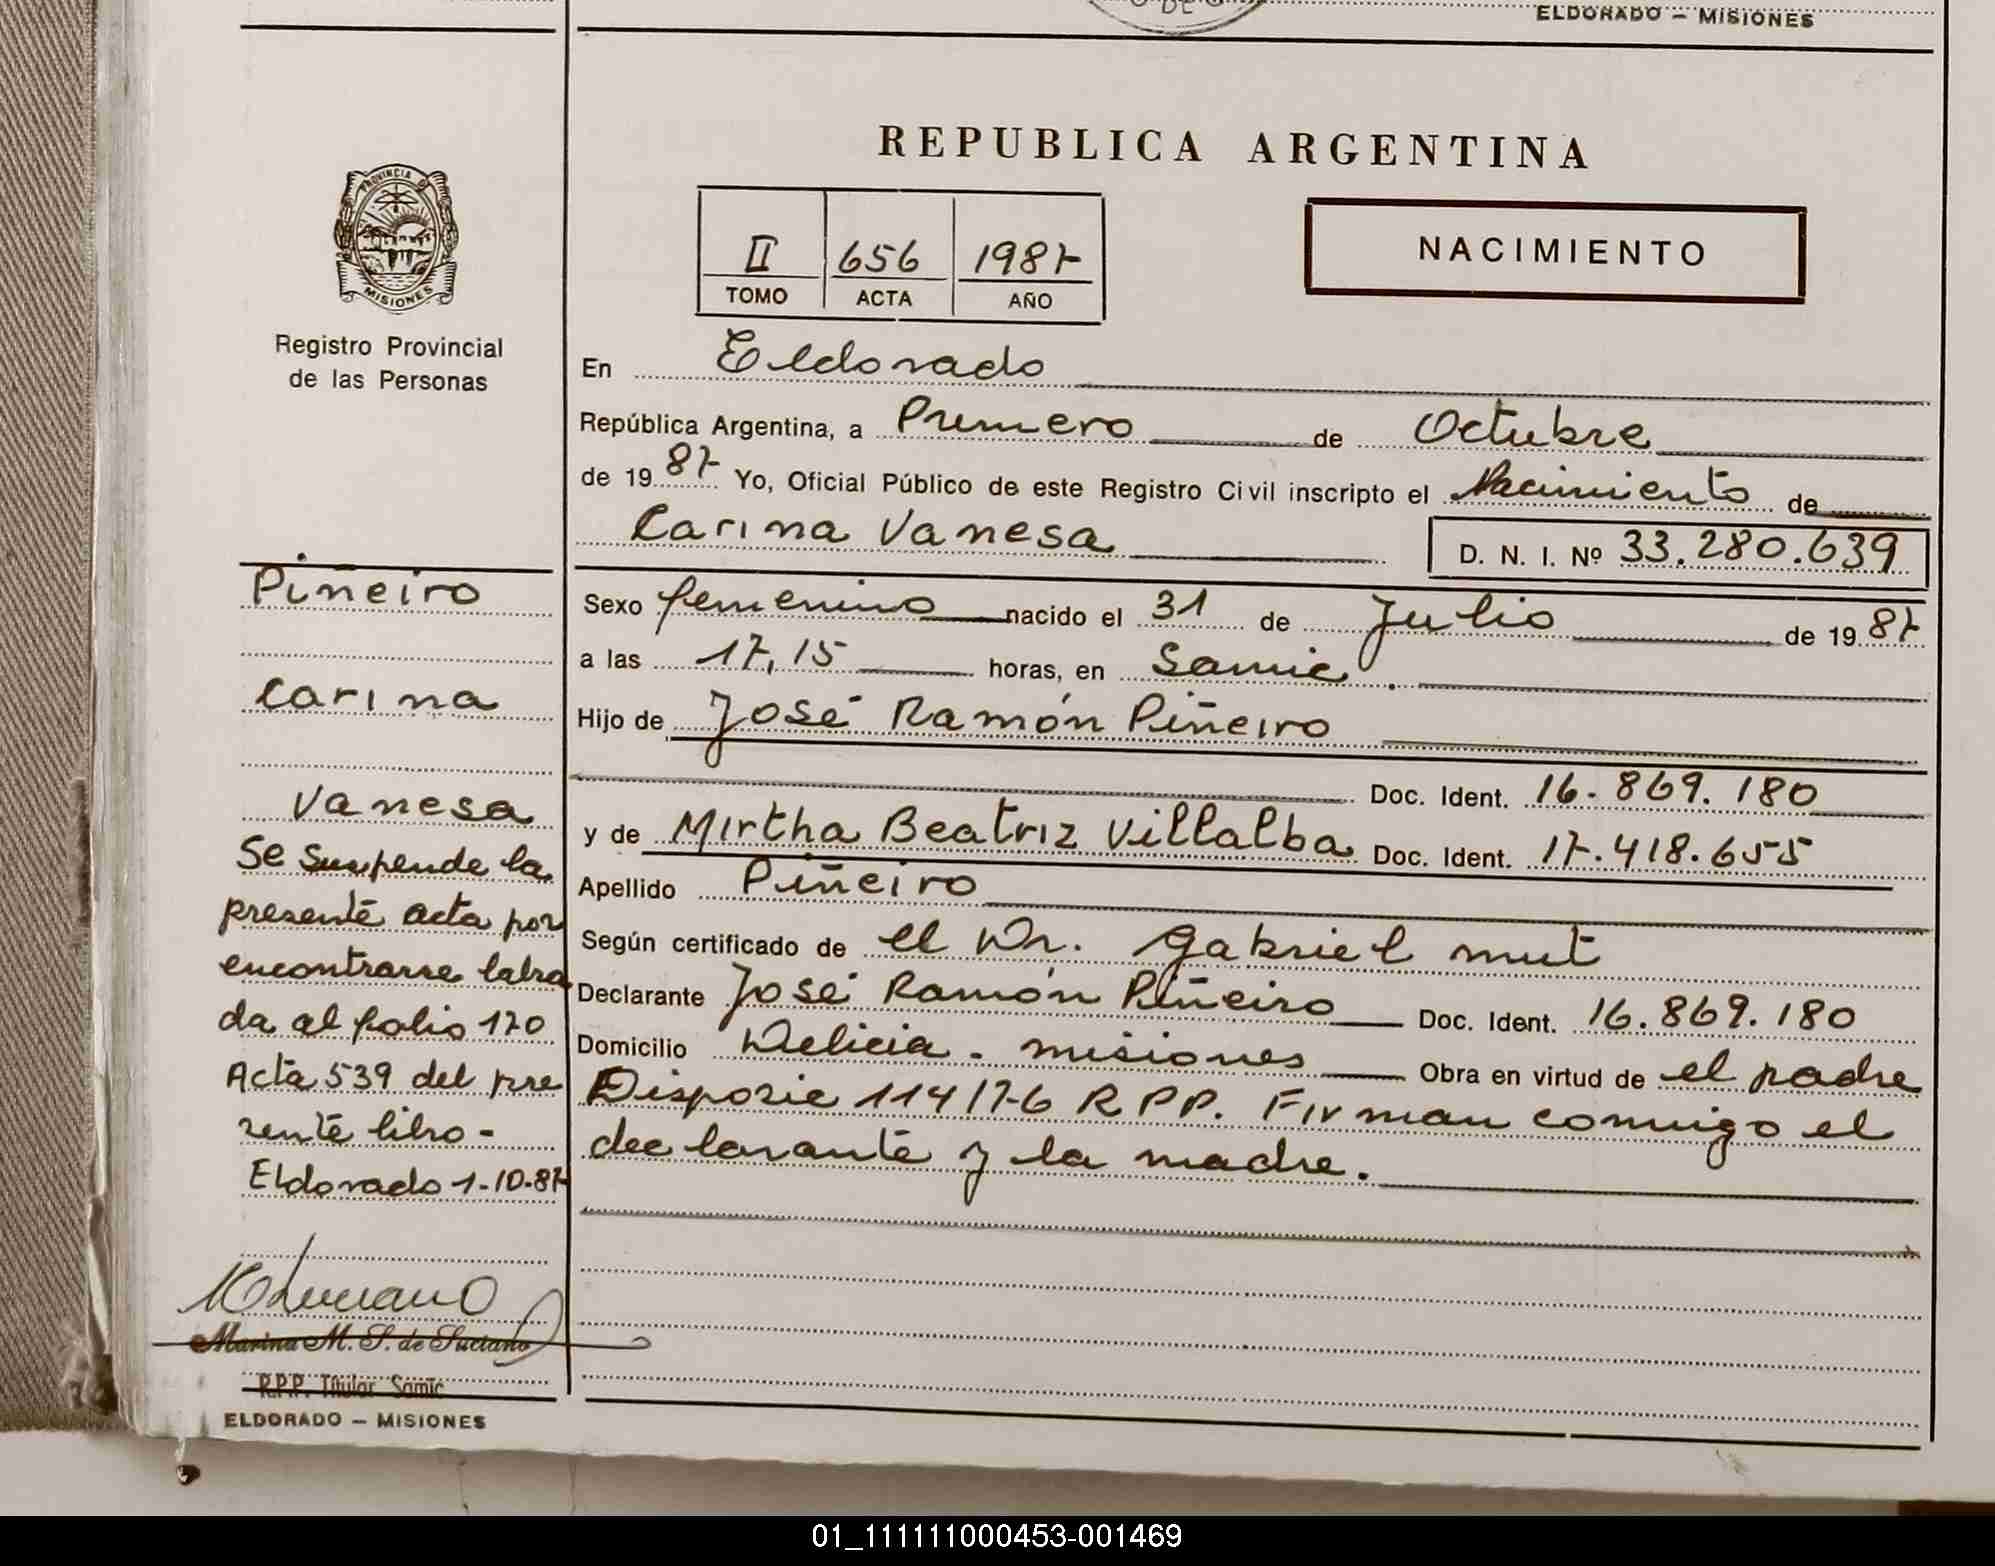 DE
ELDORADO – MISIONES
REPUBLICA ARGENTINA
PROVINCIA D
MISIONES
Registro Provincial
de las Personas
II 656 1987
TOMO ACTA AÑO
NACIMIENTO
En Eldorado
República Argentina, a Primero de Octubre
de 1987 Yo, Oficial Público de este Registro Civil inscripto el Nacimiento de
Carina Vanesa D. N. I. Nº 33.280.639
Sexo femenino nacido el 31 de Julio de 1987
a las 17,15 horas, en Samic.
Hijo de José Ramón Piñeiro
Doc. Ident. 16.869.180
y de Mirtha Beatriz Villalba Doc. Ident. 17.418.655
Apellido Piñeiro
Según certificado de el Dr. Gabriel Mut
Declarante José Ramón Piñeiro Doc. Ident. 16.869.180
Domicilio Delicia - Misiones Obra en virtud de el padre
Disposic 114/76 R P P. Firman conmigo el
declarante y la madre.
Piñeiro
Carina
Vanesa
Se suspende la
presente acta por
encontrarse labra
da al folio 170
Acta 539 del pre
sente libro -
Eldorado 1-10-87
Marina M. S. de Luciano
R.P.P. Titular Samic
ELDORADO – MISIONES
01_111111000453-001469